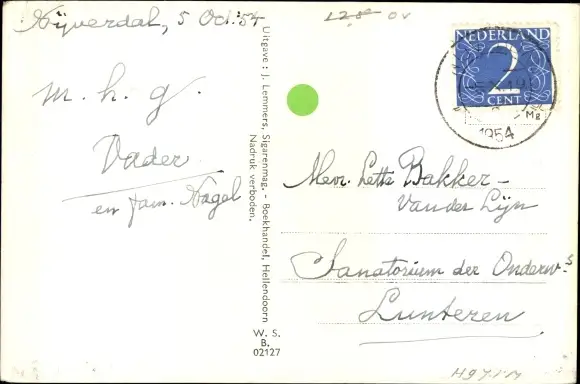 Nijverdal, 5 Oct. '54
m. h. g.
Vader
en fam. Nagel
Uitgave : J. Lemmers, Sigarenmag. - Boekhandel, Hellendoorn
Nadruk verboden.
W. S.
B.
02127
NEDERLAND
2
CENT
1954
Mevr. Lette Bakker-
van der Lijn
Sanatorium der Onderw.s
Lunteren